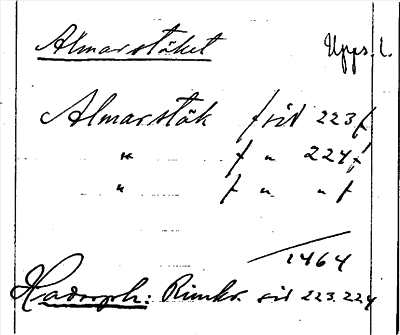 Almarstäket Upps. l.
Almarstäk f sid 223 f
" f " 224 f
" f " " f
1464
Hadorph: Rimkr. sid 223.224